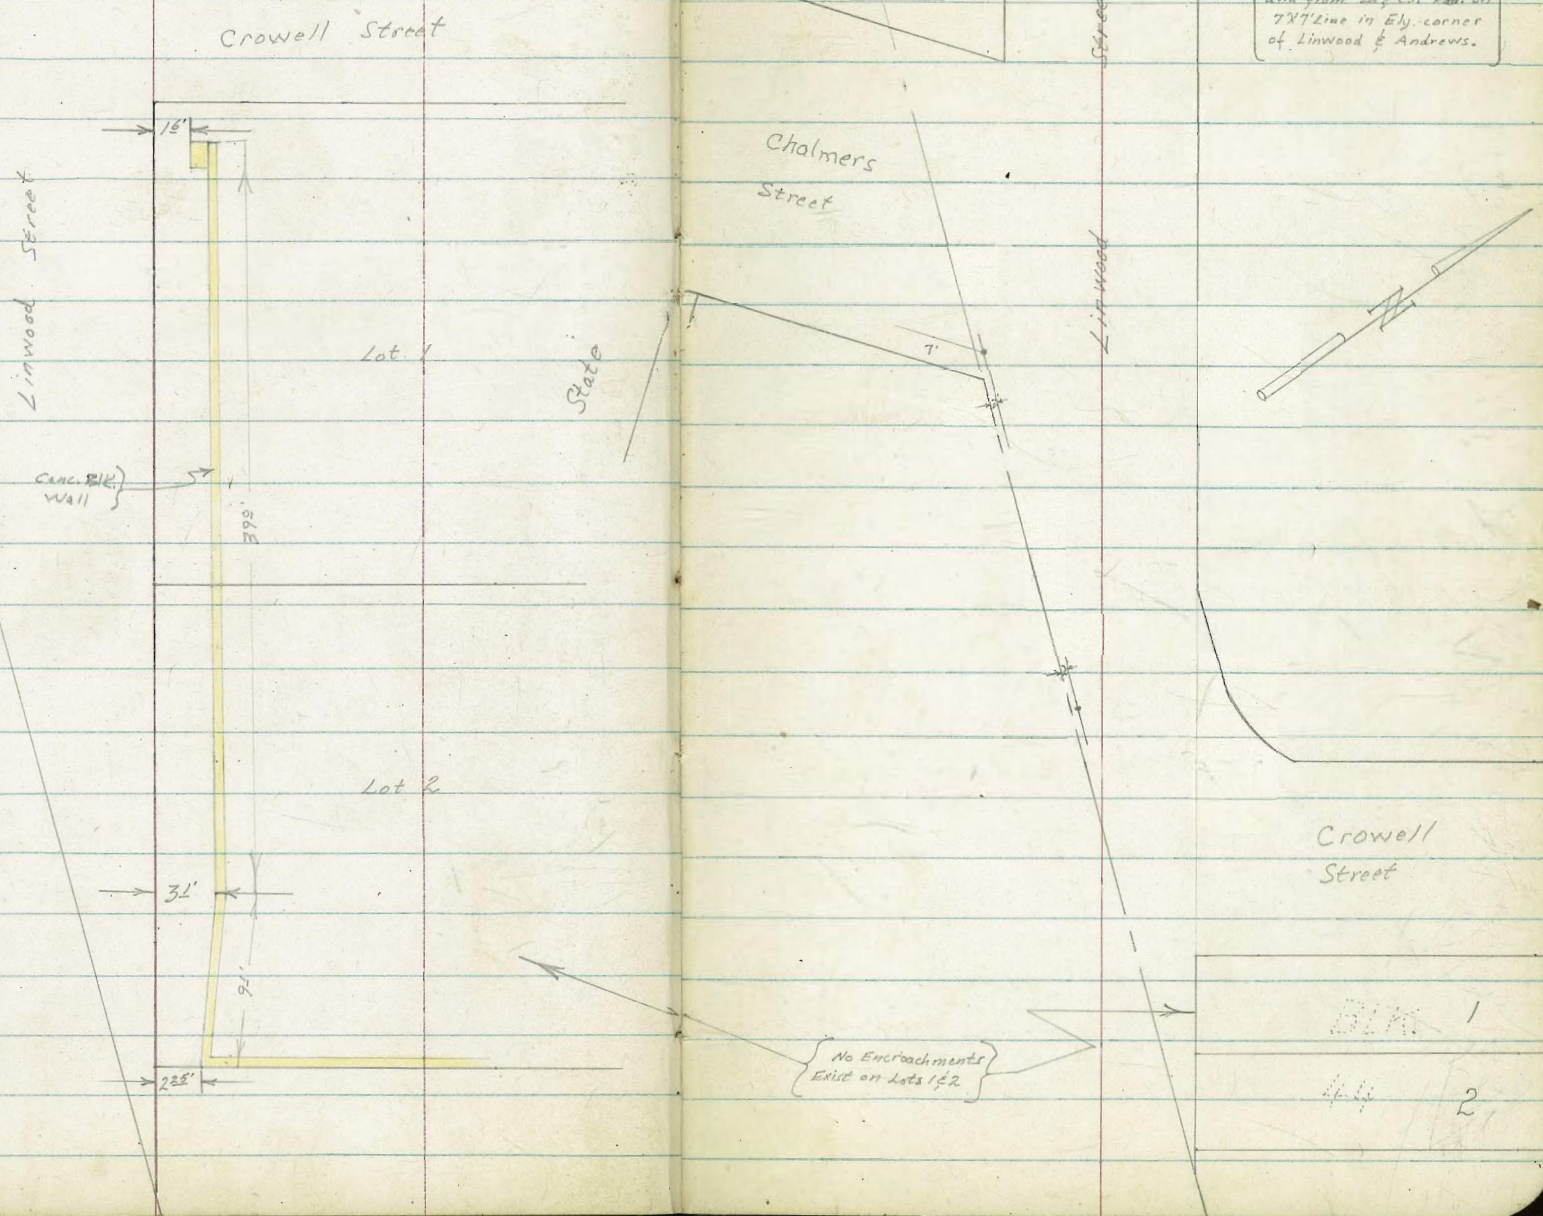 Crowell Street
1 6'
Linwood Street
Lot 1
Conc. Blk.
Wall
Lot 2
3 1'
2 25'
State
7'X7' Line in Ely. corner
of Linwood & Andrews.
Street
Chalmers
Street
Linwood
7'
Crowell
Street
No Encroachments
Exist on Lots 1 & 2
BLK. 1
44 2